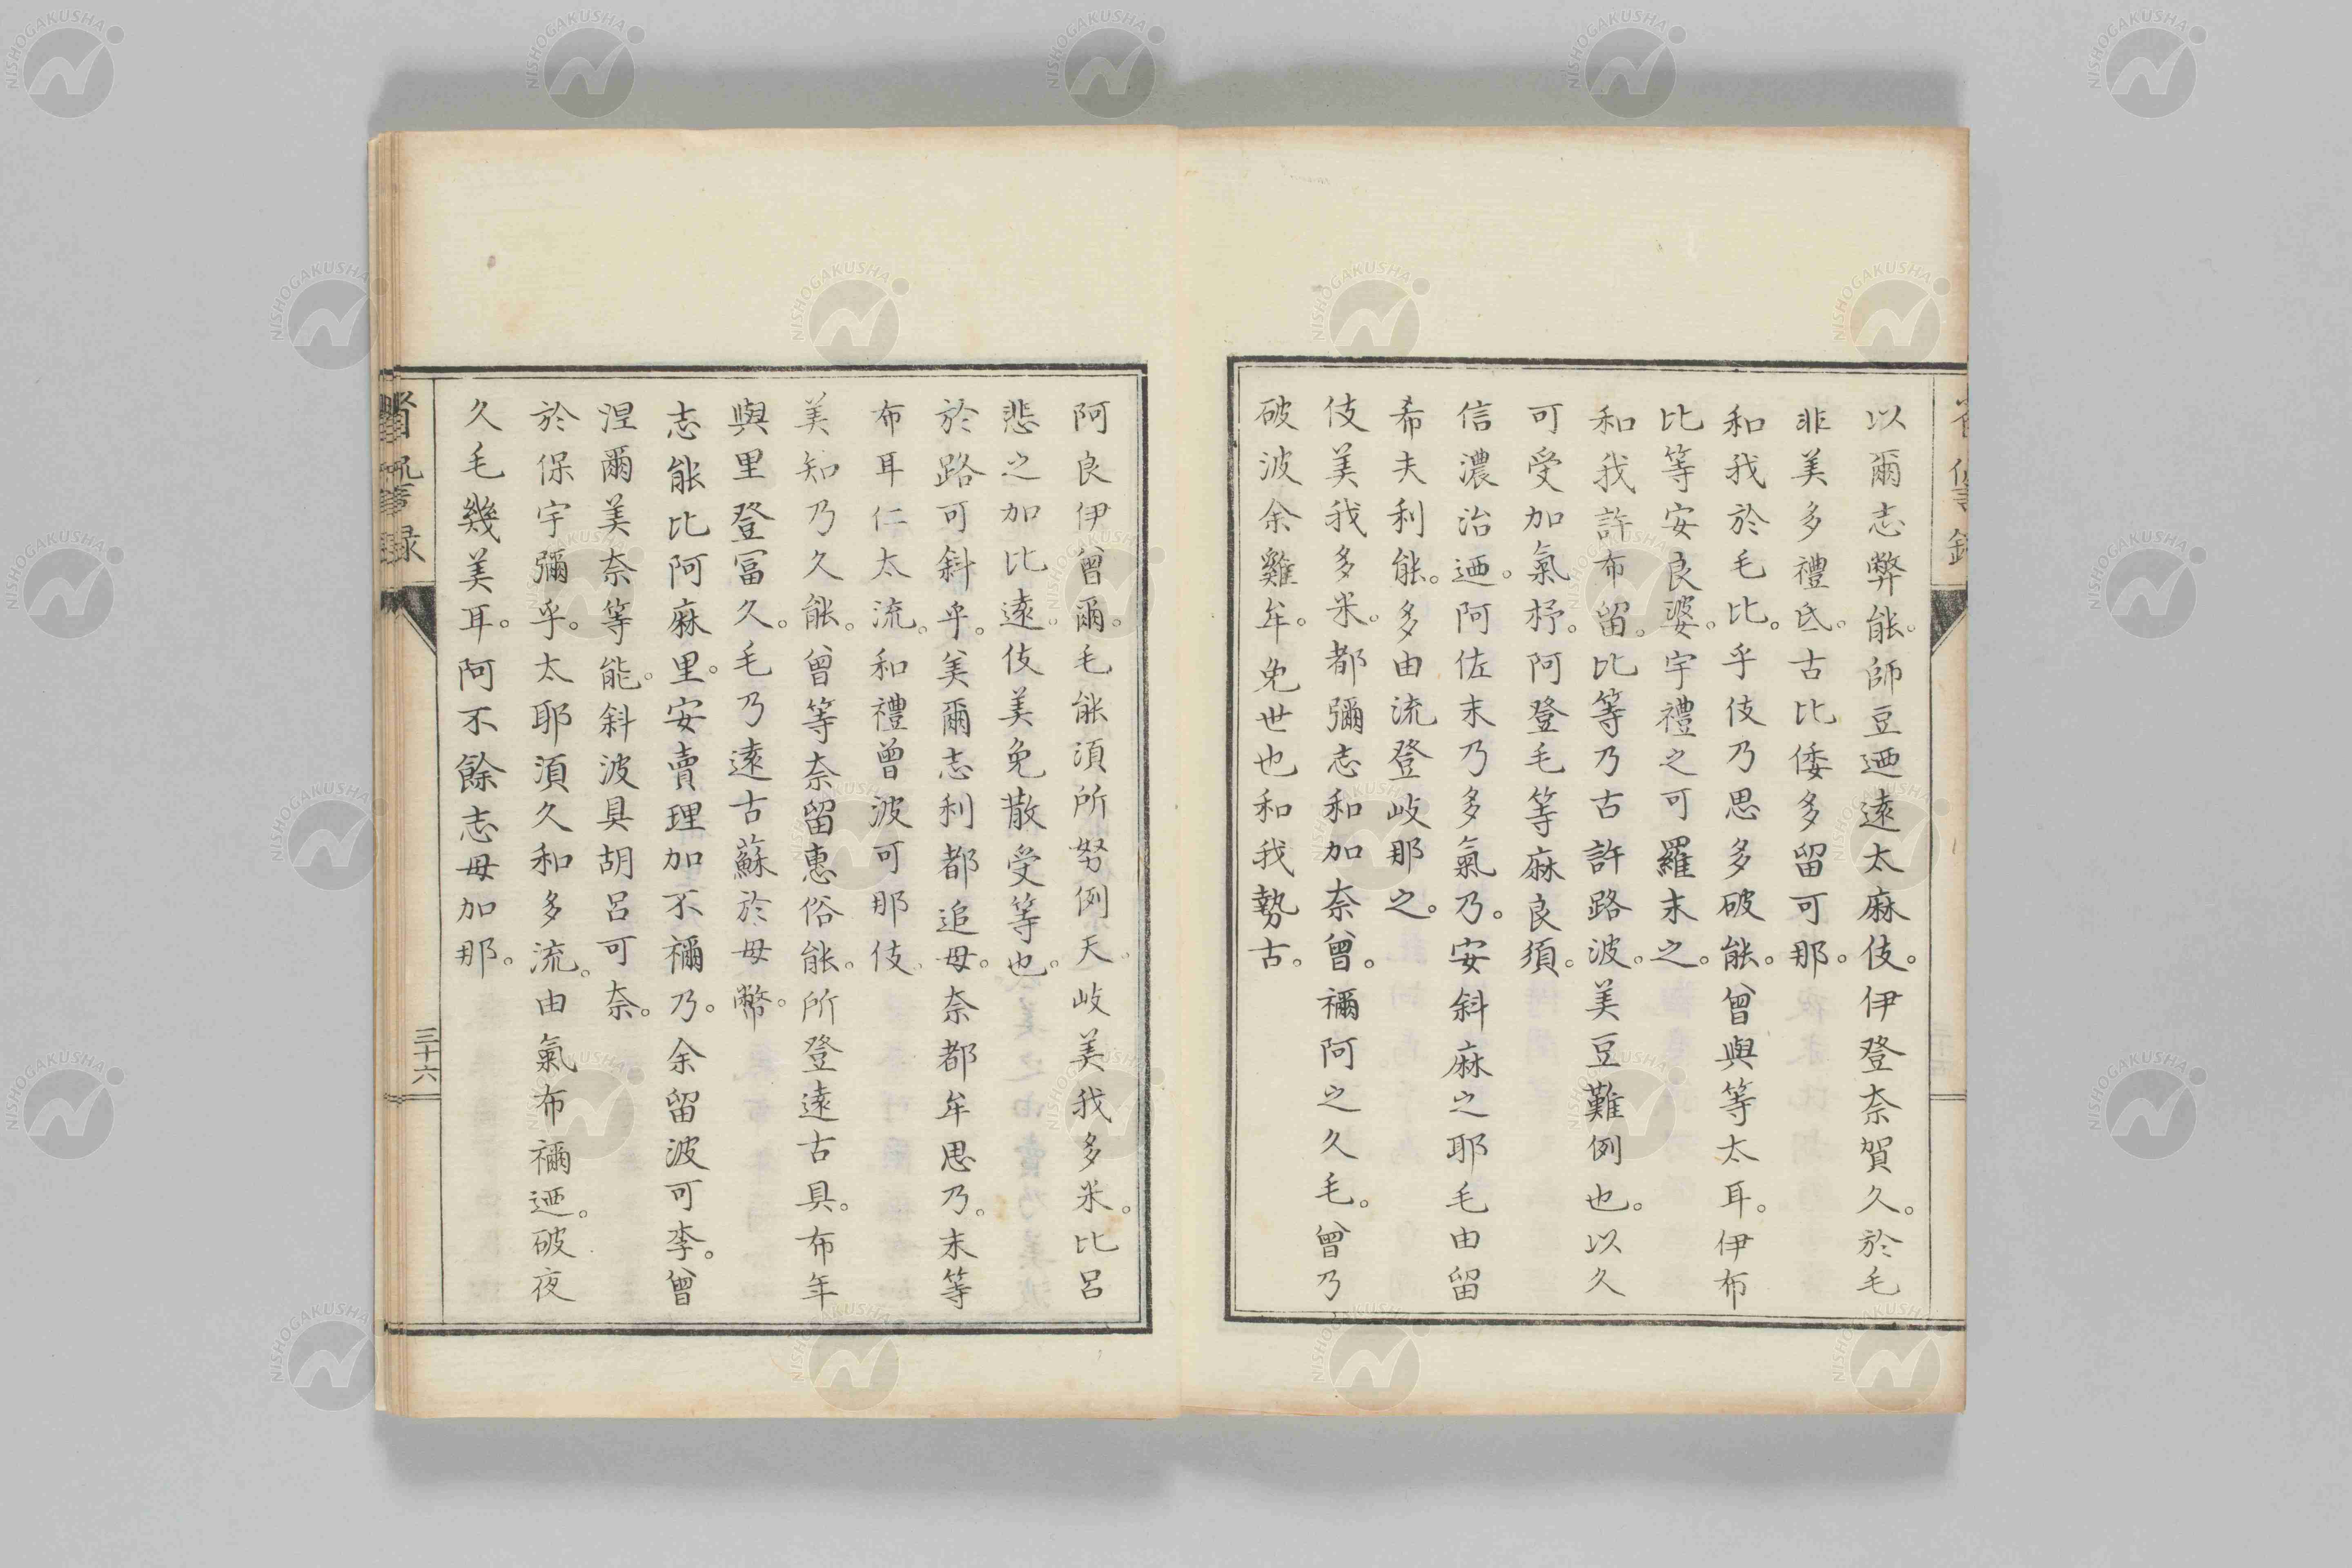 以爾志弊能。師豆迺遠太麻伎。伊登奈賀久。於毛
非美多禮氐。古比倭多留可那。
和我於毛比。乎伎乃思多破能。曾與等太耳。伊布
比等安良婆。宇禮之可羅末之。
和我許布留。比等乃古許路波。美豆難例也。以久
可受加氣杼。阿登毛等麻良須。
信濃治迺。阿佐末乃多氣乃。安斜麻之耶毛由留
希夫利能。多由流登岐那之。
伎美我多米。都彌志和加奈曾。禰阿之久毛。曾乃
破波余雞牟。免世也和我勢古。
阿良伊曾爾。毛能須所努例天。岐美我多米。比呂
悲之加比遠。伎美免散受等也。
於路可斜乎。美爾志利都追母。奈都牟思乃。末等
布耳仁太流。和禮曾波可那伎。
美知乃久能。曾等奈留惠俗能。所登遠古具。布年
與里登冨久。毛乃遠古蘇於母幣。
志能比阿麻里。安賣理加不禰乃。余留波可李。曾
涅爾美奈等能。斜波具胡呂可奈。
於保宇彌乎。太耶須久和多流。由氣布禰迺。破夜
久毛幾美耳。阿不餘志母加那。
三十六
NISHOGAKUSHA